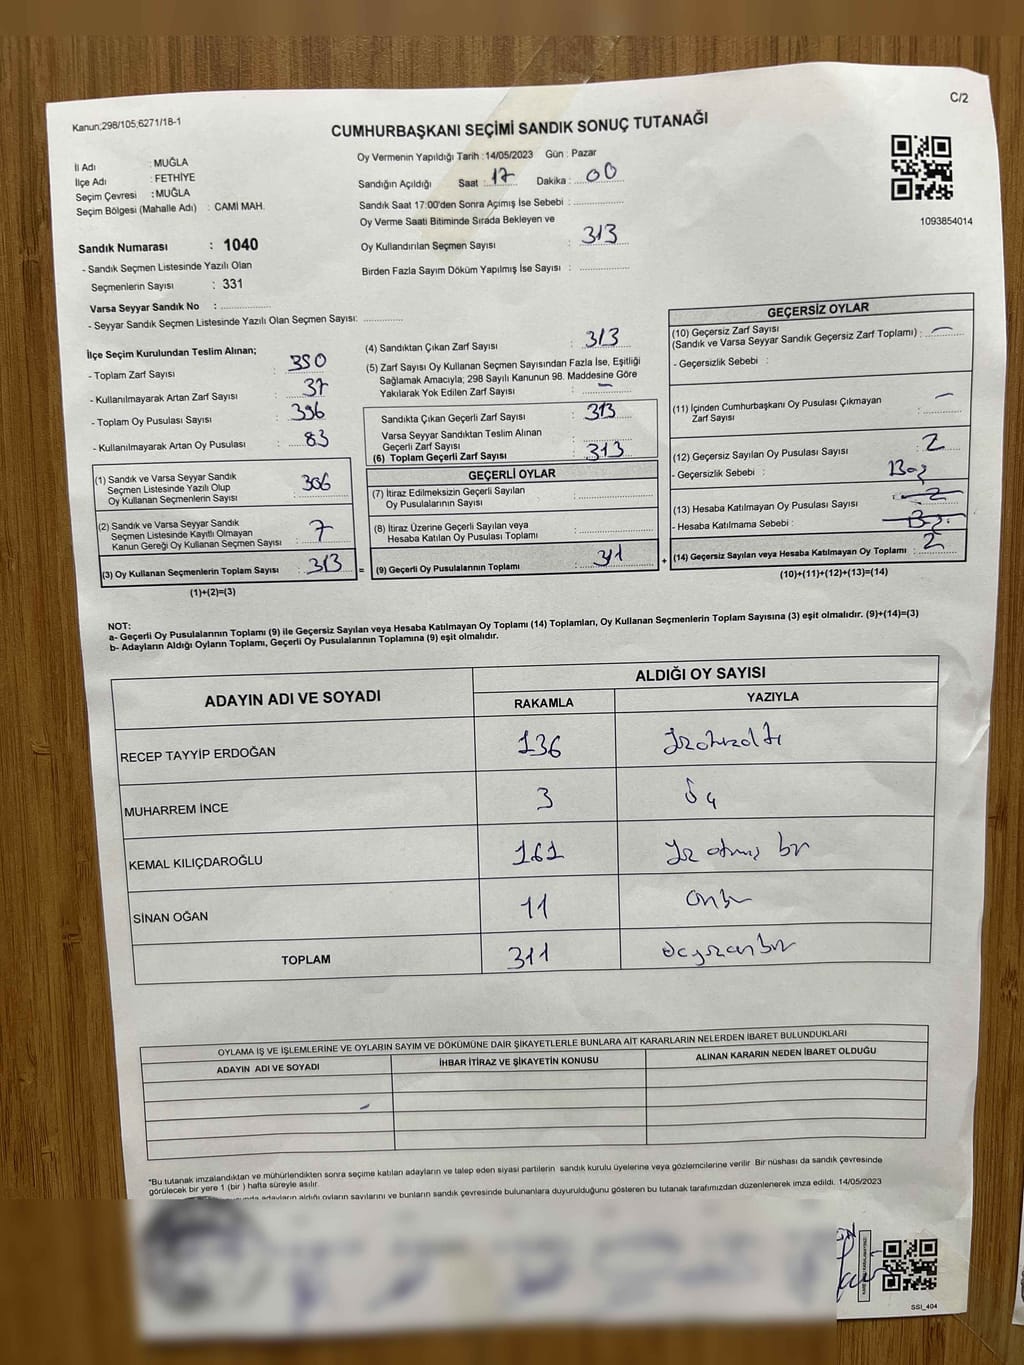 C/2
Kanun,298/105;6271/18-1
CUMHURBAŞKANI SEÇİMİ SANDIK SONUÇ TUTANAĞI
1093854014
İl Adı : MUĞLA
İlçe Adı : FETHİYE
Seçim Çevresi : MUĞLA
Seçim Bölgesi (Mahalle Adı) : CAMİ MAH.
Sandık Numarası : 1040
- Sandık Seçmen Listesinde Yazılı Olan
Seçmenlerin Sayısı : 331
Varsa Seyyar Sandık No : ....................
- Seyyar Sandık Seçmen Listesinde Yazılı Olan Seçmen Sayısı: ..............
Oy Vermenin Yapıldığı Tarih :14/05/2023 Gün : Pazar
Sandığın Açıldığı Saat : 17 Dakika : 00
Sandık Saat 17:00'den Sonra Açımış İse Sebebi : ..................
Oy Verme Saati Bitiminde Sırada Bekleyen ve
Oy Kullandırılan Seçmen Sayısı : 313
Birden Fazla Sayım Döküm Yapılmış İse Sayısı : ..................
İlçe Seçim Kurulundan Teslim Alınan;
- Toplam Zarf Sayısı : 350
- Kullanılmayarak Artan Zarf Sayısı : 37
- Toplam Oy Pusulası Sayısı : 396
- Kullanılmayarak Artan Oy Pusulası : 83
(1) Sandık ve Varsa Seyyar Sandık
Seçmen Listesinde Yazılı Olup
Oy Kullanan Seçmenlerin Sayısı : 306
(2) Sandık ve Varsa Seyyar Sandık
Seçmen Listesinde Kayıtlı Olmayan
Kanun Gereği Oy Kullanan Seçmen Sayısı : 7
(3) Oy Kullanan Seçmenlerin Toplam Sayısı : 313 =
(1)+(2)=(3)
(4) Sandıktan Çıkan Zarf Sayısı : 313
(5) Zarf Sayısı Oy Kullanan Seçmen Sayısından Fazla İse, Eşitliği
Sağlamak Amacıyla, 298 Sayılı Kanunun 98. Maddesine Göre
Yakılarak Yok Edilen Zarf Sayısı : –
Sandıkta Çıkan Geçerli Zarf Sayısı : 313
Varsa Seyyar Sandıktan Teslim Alınan
Geçerli Zarf Sayısı :
(6) Toplam Geçerli Zarf Sayısı : 313
GEÇERLİ OYLAR
(7) İtiraz Edilmeksizin Geçerli Sayılan
Oy Pusulalarının Sayısı : ..................
(8) İtiraz Üzerine Geçerli Sayılan veya
Hesaba Katılan Oy Pusulası Toplamı : ..................
(9) Geçerli Oy Pusulalarının Toplamı : 311 +
GEÇERSİZ OYLAR
(10) Geçersiz Zarf Sayısı
(Sandık ve Varsa Seyyar Sandık Geçersiz Zarf Toplamı) : –
- Geçersizlik Sebebi :
(11) İçinden Cumhurbaşkanı Oy Pusulası Çıkmayan
Zarf Sayısı : –
(12) Geçersiz Sayılan Oy Pusulası Sayısı : 2
- Geçersizlik Sebebi : Boş
(13) Hesaba Katılmayan Oy Pusulası Sayısı : 2
- Hesaba Katılmama Sebebi :
(14) Geçersiz Sayılan veya Hesaba Katılmayan Oy Toplamı : 2
(10)+(11)+(12)+(13)=(14)
NOT:
a- Geçerli Oy Pusulalarının Toplamı (9) ile Geçersiz Sayılan veya Hesaba Katılmayan Oy Toplamı (14) Toplamları, Oy Kullanan Seçmenlerin Toplam Sayısına (3) eşit olmalıdır. (9)+(14)=(3)
b- Adayların Aldığı Oyların Toplamı, Geçerli Oy Pusulalarının Toplamına (9) eşit olmalıdır.
ADAYIN ADI VE SOYADI ALDIĞI OY SAYISI
RAKAMLA YAZIYLA
RECEP TAYYİP ERDOĞAN 136 Yüzotuzaltı
MUHARREM İNCE 3 üç
KEMAL KILIÇDAROĞLU 161 Yüz atmış bir
SİNAN OĞAN 11 onbir
TOPLAM 311 üçyüzonbir
OYLAMA İŞ VE İŞLEMLERİNE VE OYLARIN SAYIM VE DÖKÜMÜNE DAİR ŞİKAYETLERLE BUNLARA AİT KARARLARIN NELERDEN İBARET BULUNDUKLARI
ADAYIN ADI VE SOYADI İHBAR İTİRAZ VE ŞİKAYETİN KONUSU ALINAN KARARIN NEDEN İBARET OLDUĞU
*Bu tutanak imzalandıktan ve mühürlendikten sonra seçime katılan adayların ve talep eden siyasi partilerin sandık kurulu üyelerine veya gözlemcilerine verilir Bir nüshası da sandık çevresinde
görülecek bir yere 1 (bir ) hafta süreyle asılır.
adayların aldığı oyların sayılarını ve bunların sandık çevresinde bulunanlara duyurulduğunu gösteren bu tutanak tarafımızdan düzenlenerek imza edildi. 14/05/2023
SSI_404